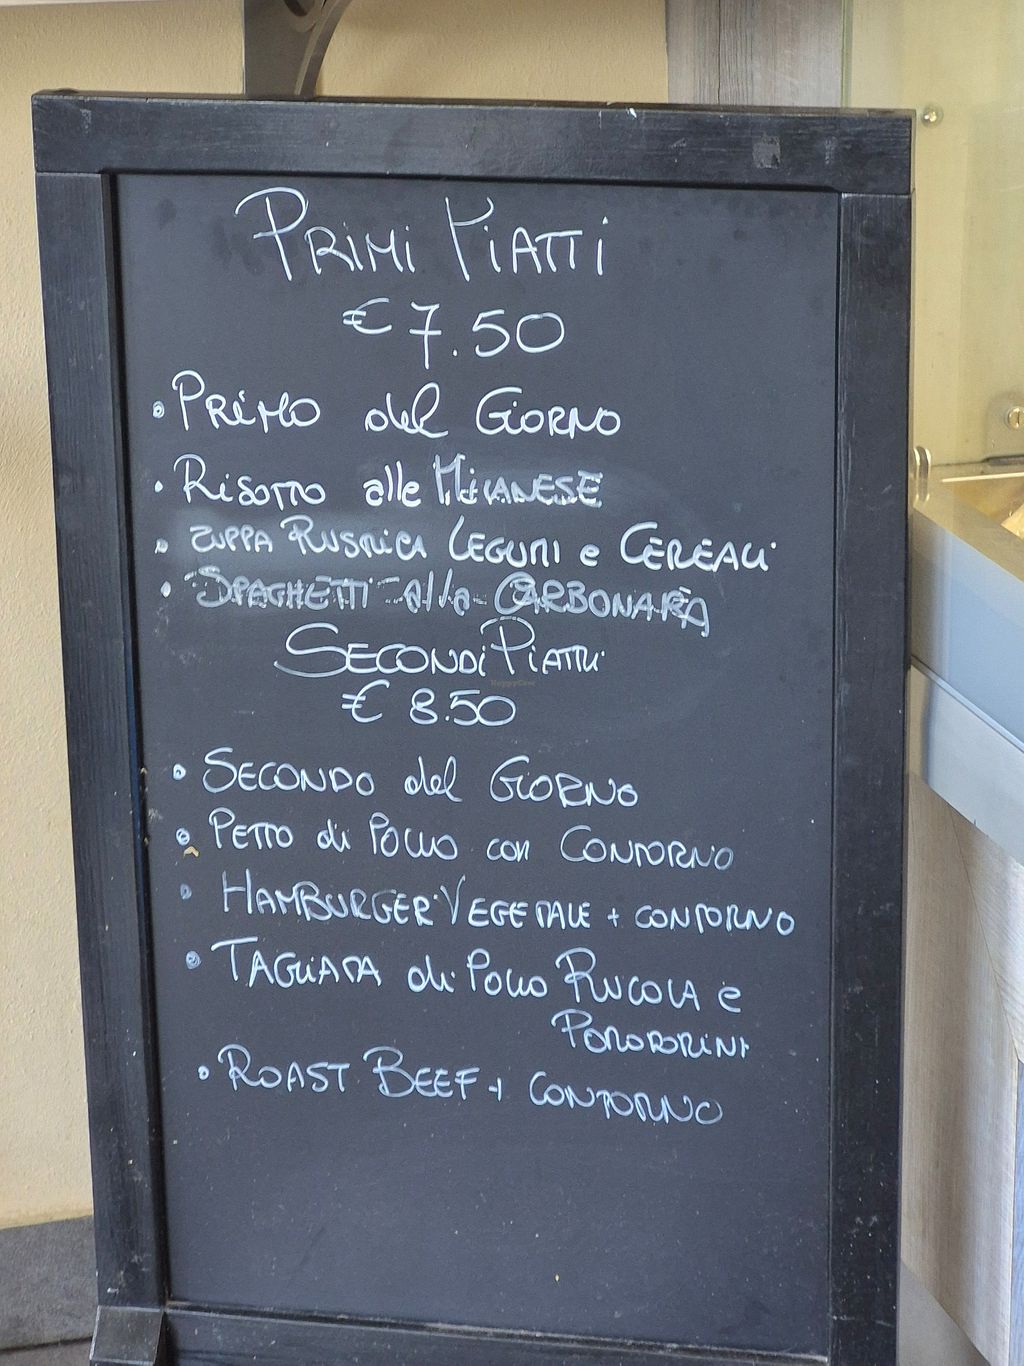 PRIMI PIATTI
€ 7.50
• PRIMO del GIORNO
• RISOTTO alle MILANESE
• ZUPPA RUSTICA LEGUMI e CEREALI
• SPAGHETTI alla CARBONARA
SECONDI PIATTI
€ 8.50
• SECONDO del GIORNO
• PETTO di POLLO con CONTORNO
• HAMBURGER VEGETALE + CONTORNO
• TAGLIATA di POLLO RUCOLA e
POMODORINI
• ROAST BEEF + CONTORNO